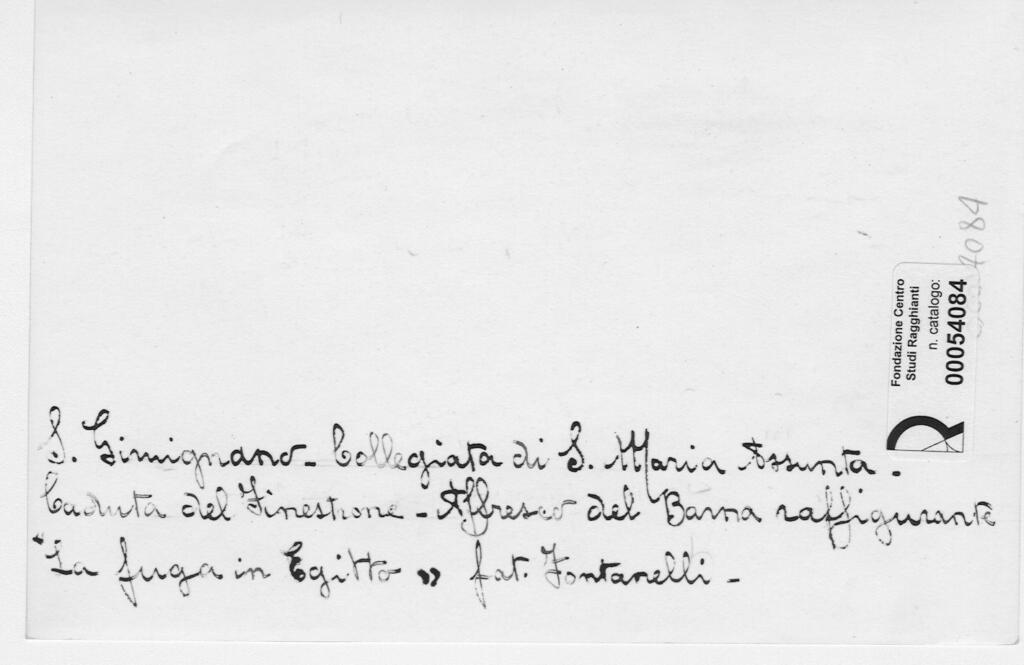 S. Gimignano - Collegiata di S. Maria Assunta -
Caduta del Finestrone - Affresco del Barna raffigurante
"La fuga in Egitto" fot. Fontanelli -
Fondazione Centro
Studi Ragghianti
n. catalogo:
00054084